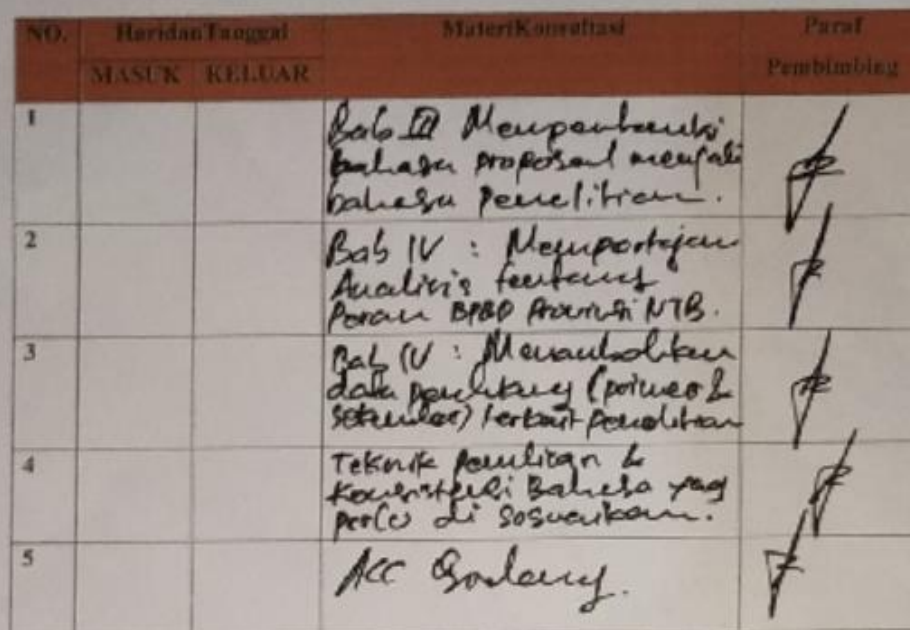 NO. Hari dan Tanggal Materi Konsultasi Paraf
MASUK KELUAR Pembimbing
1 Bab III Memperbaiki
bahasa proposal menjadi
bahasa penelitian.
2 Bab IV : Mempertajam
Analisis tentang
Peran BPBD Provinsi NTB.
3 Bab IV : Menambahkan
data pendukung (primer &
sekunder) terkait penelitian
4 Teknik penulisan &
Konsistensi Bahasa yang
perlu di sesuaikan.
5 ACC